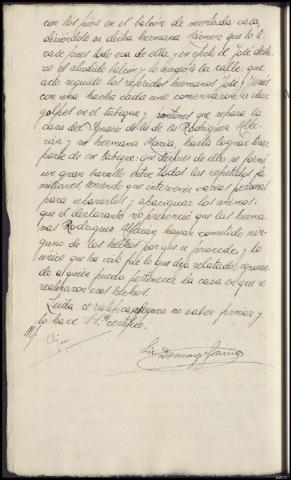 con los pies en el balcón de mentada casa,
diciéndole su dicha hermana Carmen que lo ti-
rase pues todo era de ella, y en efecto de José deshi-
zo el aludido balcón y lo arrojó a la calle; que
acto seguido los referidos hermanos José y Jesús
con una hacha cada uno comenzaron a dar
golpes en el tabique y que separa la
casa del Ignacio de la de los Rodríguez Alde-
rán y su hermana María, hasta lograr tirar
parte de un tabique; que despues de ello se formó
un gran barullo entre todos los repetidos fa
miliares, teniendo que intervenir varias personas
para separarlos y apaciguar los animos:
que el declarante no presenció que las herma
nas Rodríguez Alderán hayan cometido nin-
guno de los hechos por que se procede, y lo
único que ha visto fué lo que deja relatado; ignoran-
do a quien pueda pertenecer la casa en que se
realizaron esos hechos.
Leida se ratifica, asegura no saber firmar y
lo hace S.Sª certifico.